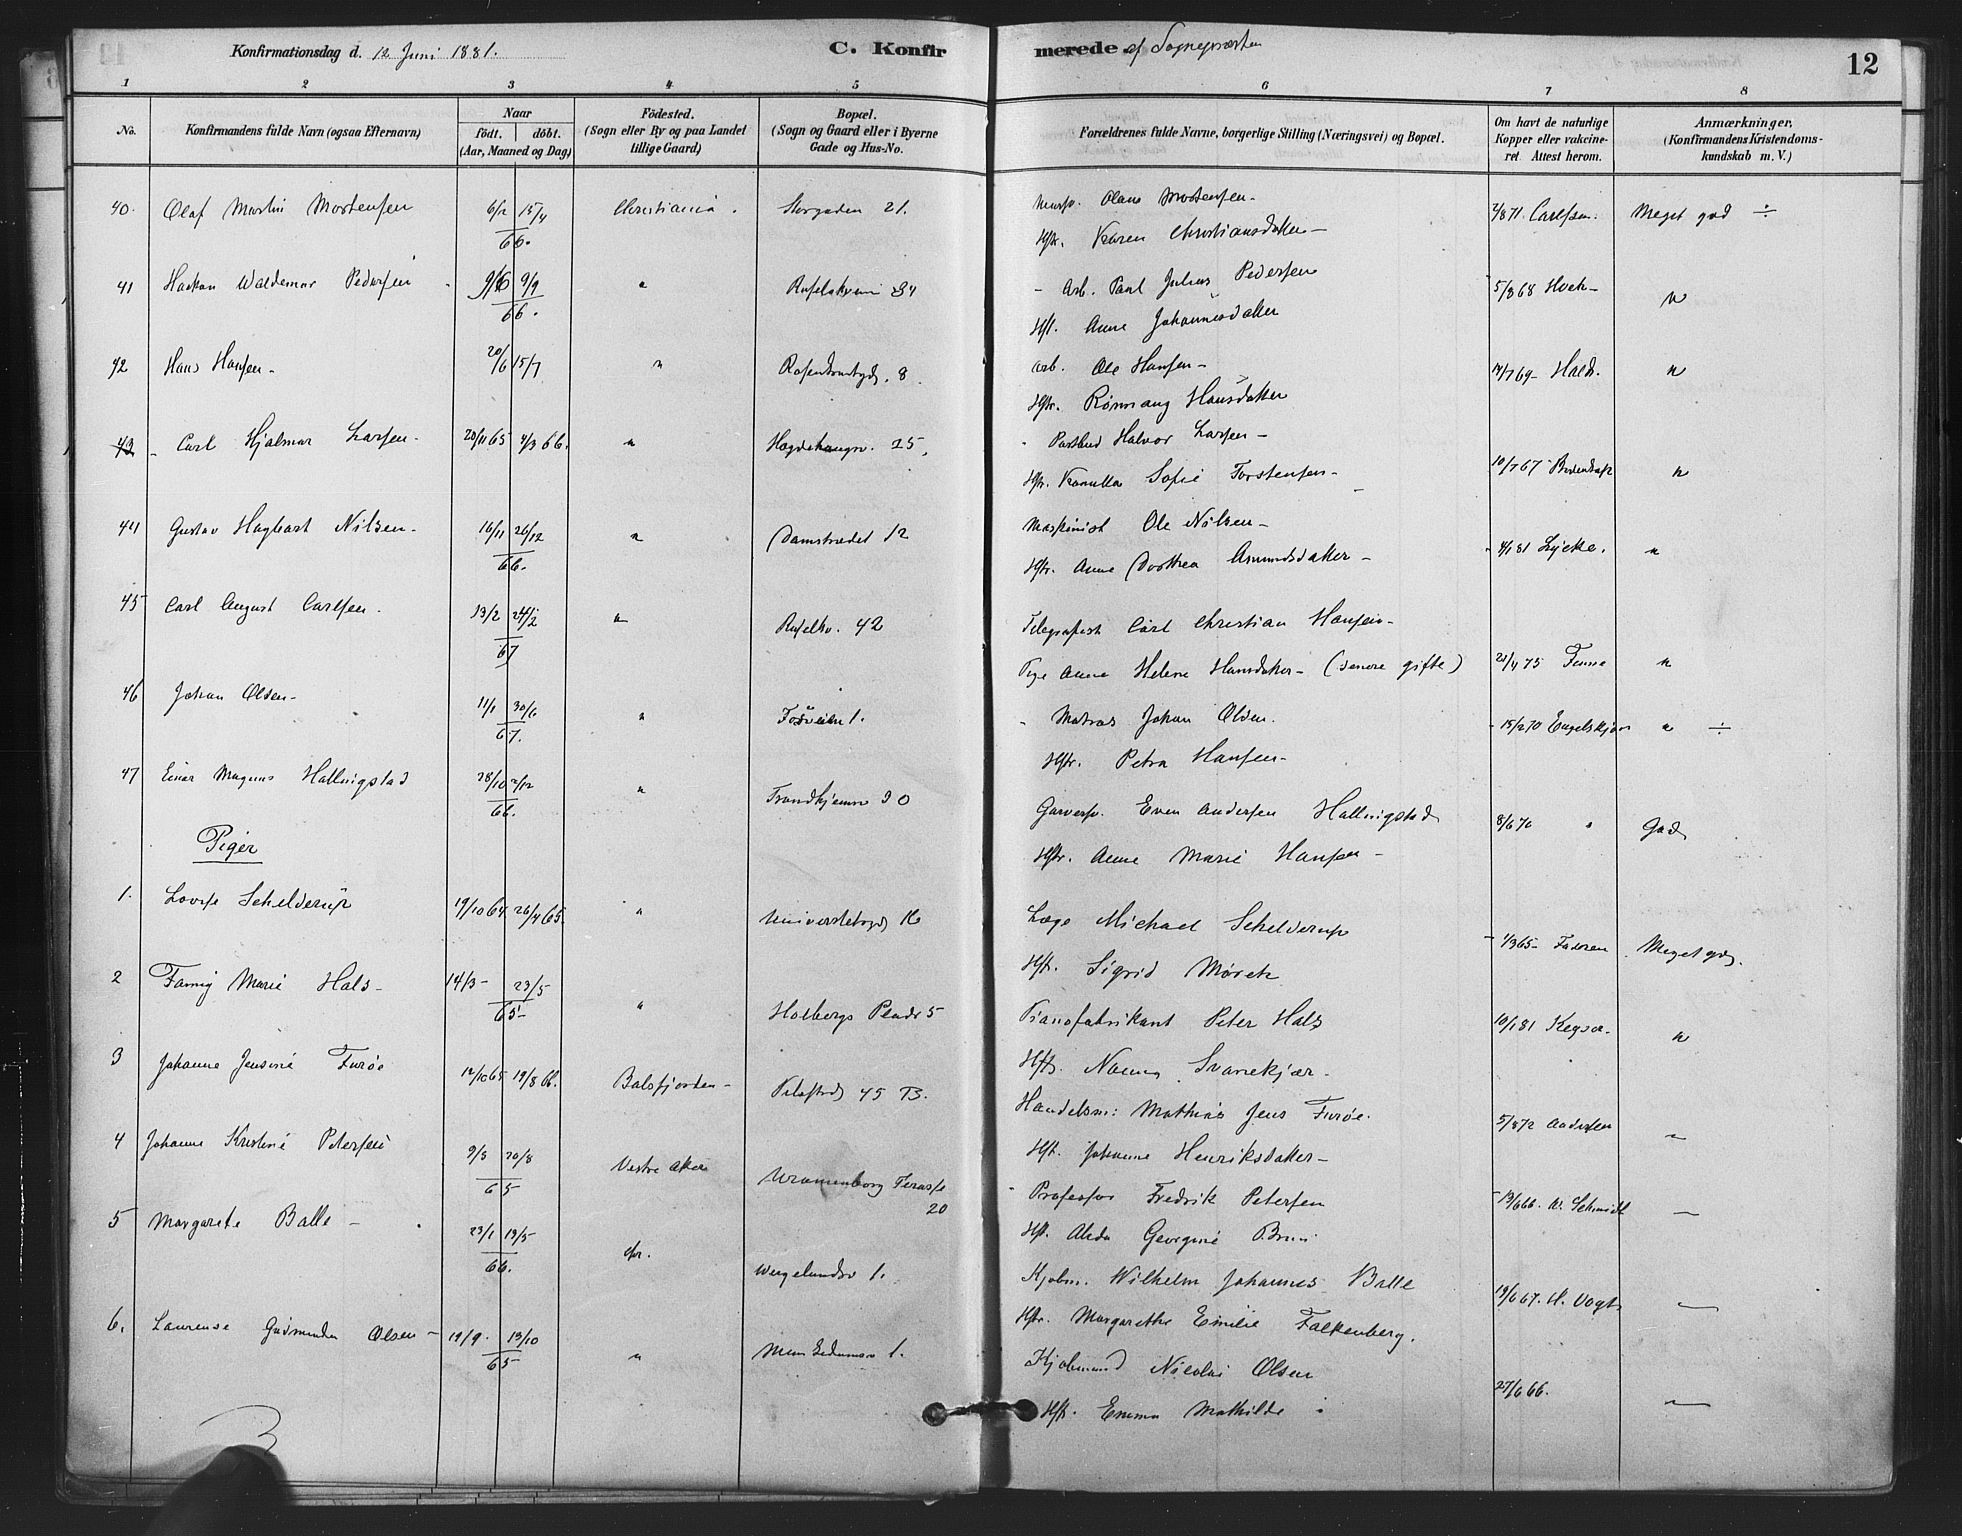 Konfirmationsdag d. 12 Juni 1881.
C. Konfirmerede af Sognepræsten
12
1 2 3 4 5 6 7 8
No.
Konfirmandens fulde Navn (ogsaa Efternavn)
Naar
födt. döbt.
(Aar, Maaned og Dag)
Födested.
(Sogn eller By og paa Landet
tillige Gaard)
Bopæl.
(Sogn og Gaard eller i Byerne
Gade og Hus-No.
Forældrenes fulde Navne, borgerlige Stilling (Næringsvei) og Bopæl.
Om havt de naturlige
Kopper eller vakcine-
ret. Attest herom.
Anmærkninger,
(Konfirmandens Kristendoms-
kundskab m. V.)
40. Olaf Martin Mortensen 6/2 15/4 66. Christiania. Storgaden 21. Olaus Mortensen - 2/8 71 Carlsen. Meget god ÷
Hstr. Karen Christiansdatter -
41 Haakon Waldemar Pedersen 9/9 66. " 34 - Arb. Paul Julius Pedersen 5/8 68 Hoch - "
Hst. Anne Johannesdatter
42 Hans Hansen - 20/6 15/7 " 8. Arb. Ole Hansen - 14/7 69 - "
Hstr. Rønnaug Hansdatter
43 - Carl Hjalmar Larsen - 20/11 65 4/3 66. " Hægdehaugsv. 25. Postbud Halvor Larsen - 10/7 67 "
Hstr. Kamilla Sofie Torstensen -
44 Gustav Hagbart Nilsen - 16/11 26/12 66. " Damstrædet 12 Maskinist Ole Nilsen - 4/1 81 Lycke. "
Hstr. Anne Dorthea Amundsdatter -
45 Carl August Carlsen. 13/2 24/2 67 " 42 Telegrafist Carl Christian Hansen -
Pige Anne Helene Hansdatter - (senere gifte) 21/4 75 "
46 Johan Olsen - 11/1 30/6 67. " 1. - Matros Johan Olsen. - 15/2 70 Engelskjøn " ÷
Hstr. Petra Hansen -
47 Einar Magnus Hallingstad 28/10 2/12 66. " 30 Garversv. Even Andersen Hallingstad 8/6 70 " God
Hstr. Anne Marie Hansen -
Piger
1. Lovise Schelderup 19/10 64. 26/4 65. " Universitetsgd 16 Læge Michael Schelderup - 1/3 65 - Meget god.
Hst. Sigrid Mørch
2 Fanny Marie Hals - 14/3 - 23/5 65 - " Holbergs Plads 5 Pianofabrikant Peter Hals 10/1 81 "
Hstr. Nanna Svanekjær -
3 Johanne Jensine Furøe 12/10 65 19/8 66. Balsfjorden - Pilestrd 45 B. Handelsm: Mathias Jens Furøe. 5/8 72 Andersen "
Hst. Johanne Henriksdatter -
4 Johanne Kristine Petersen 9/5 20/8 65 Vestre Aker Uranienborg Terasse 20 - Professor Fredrik Petersen - 19/6 66. Schmidt -
Hst. Georgine Bruun
5 Margarete Balle - 23/1 13/5 66. Chr. Wergelandsv 1. Kjøbm. Wilhelm Johannes Balle 19/6 67. H. Vogt -
Hstr. Margarethe Emilie Falkenberg.
6. Laurense Gudmunda Olsen - 19/9. 13/10 65 " 1. Kjøbmand Nicolai Olsen 27/6 66. -
Hstr. Emma Mathilde